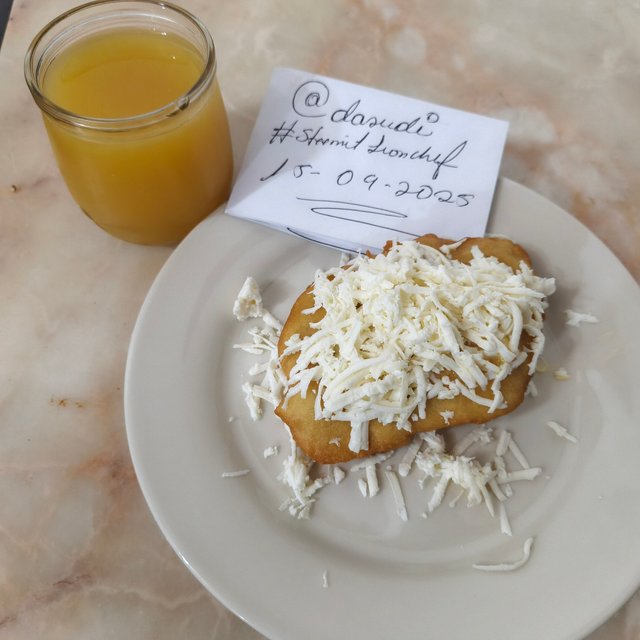 @dasudi
#Steemit Ironchef
15-09-2025